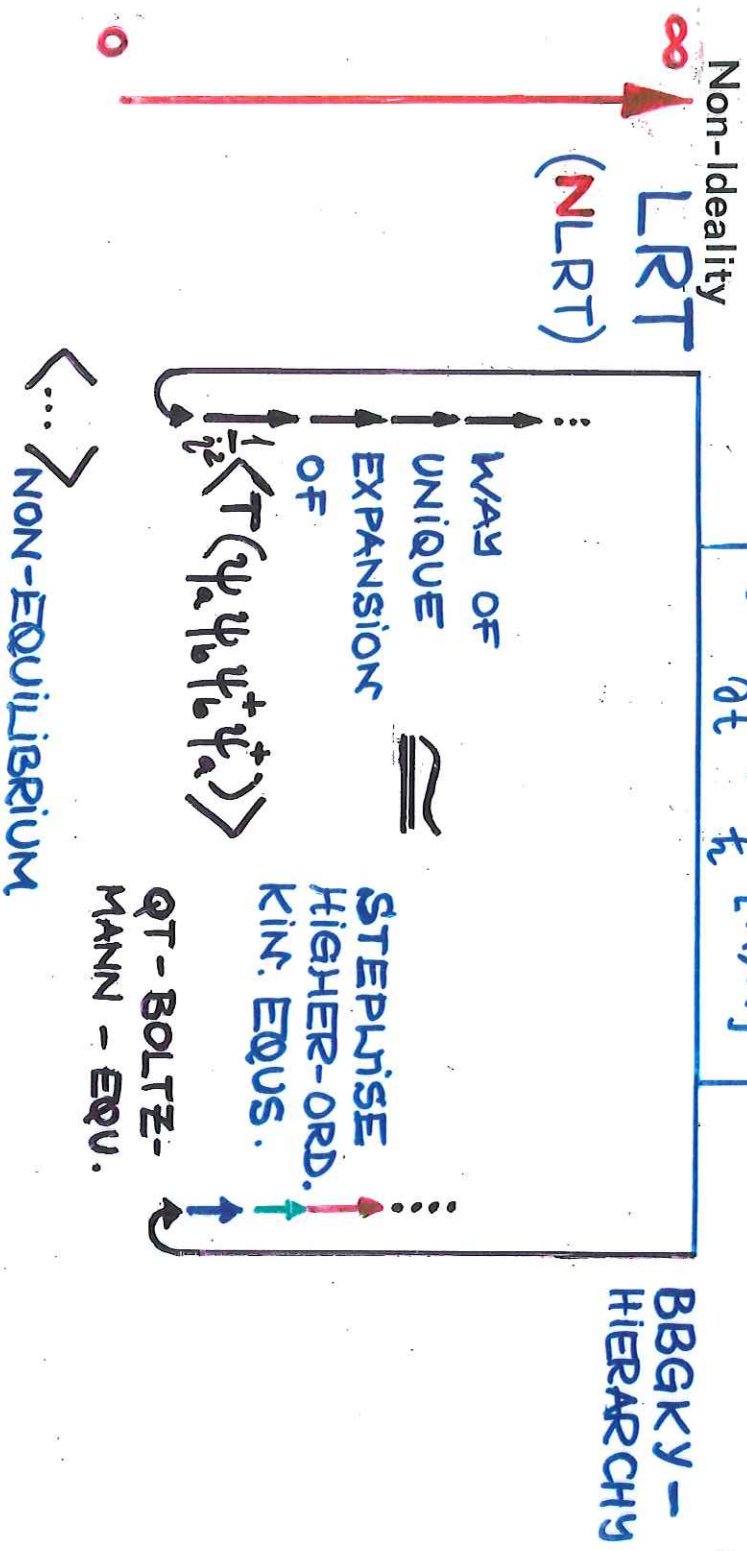 Non-Ideality
∞
0
LRT
(NLRT)
∂t ħ
BBGKY-
HIERARCHY
...
WAY OF
UNIQUE
EXPANSION
OF
1/i² <T(ψₐψ_bψ_b⁺ψₐ⁺)>
≅
STEPWISE
HIGHER-ORD.
KIN. EQUS.
....
QT-BOLTZ-
MANN - EQU.
<...>
NON-EQUILIBRIUM